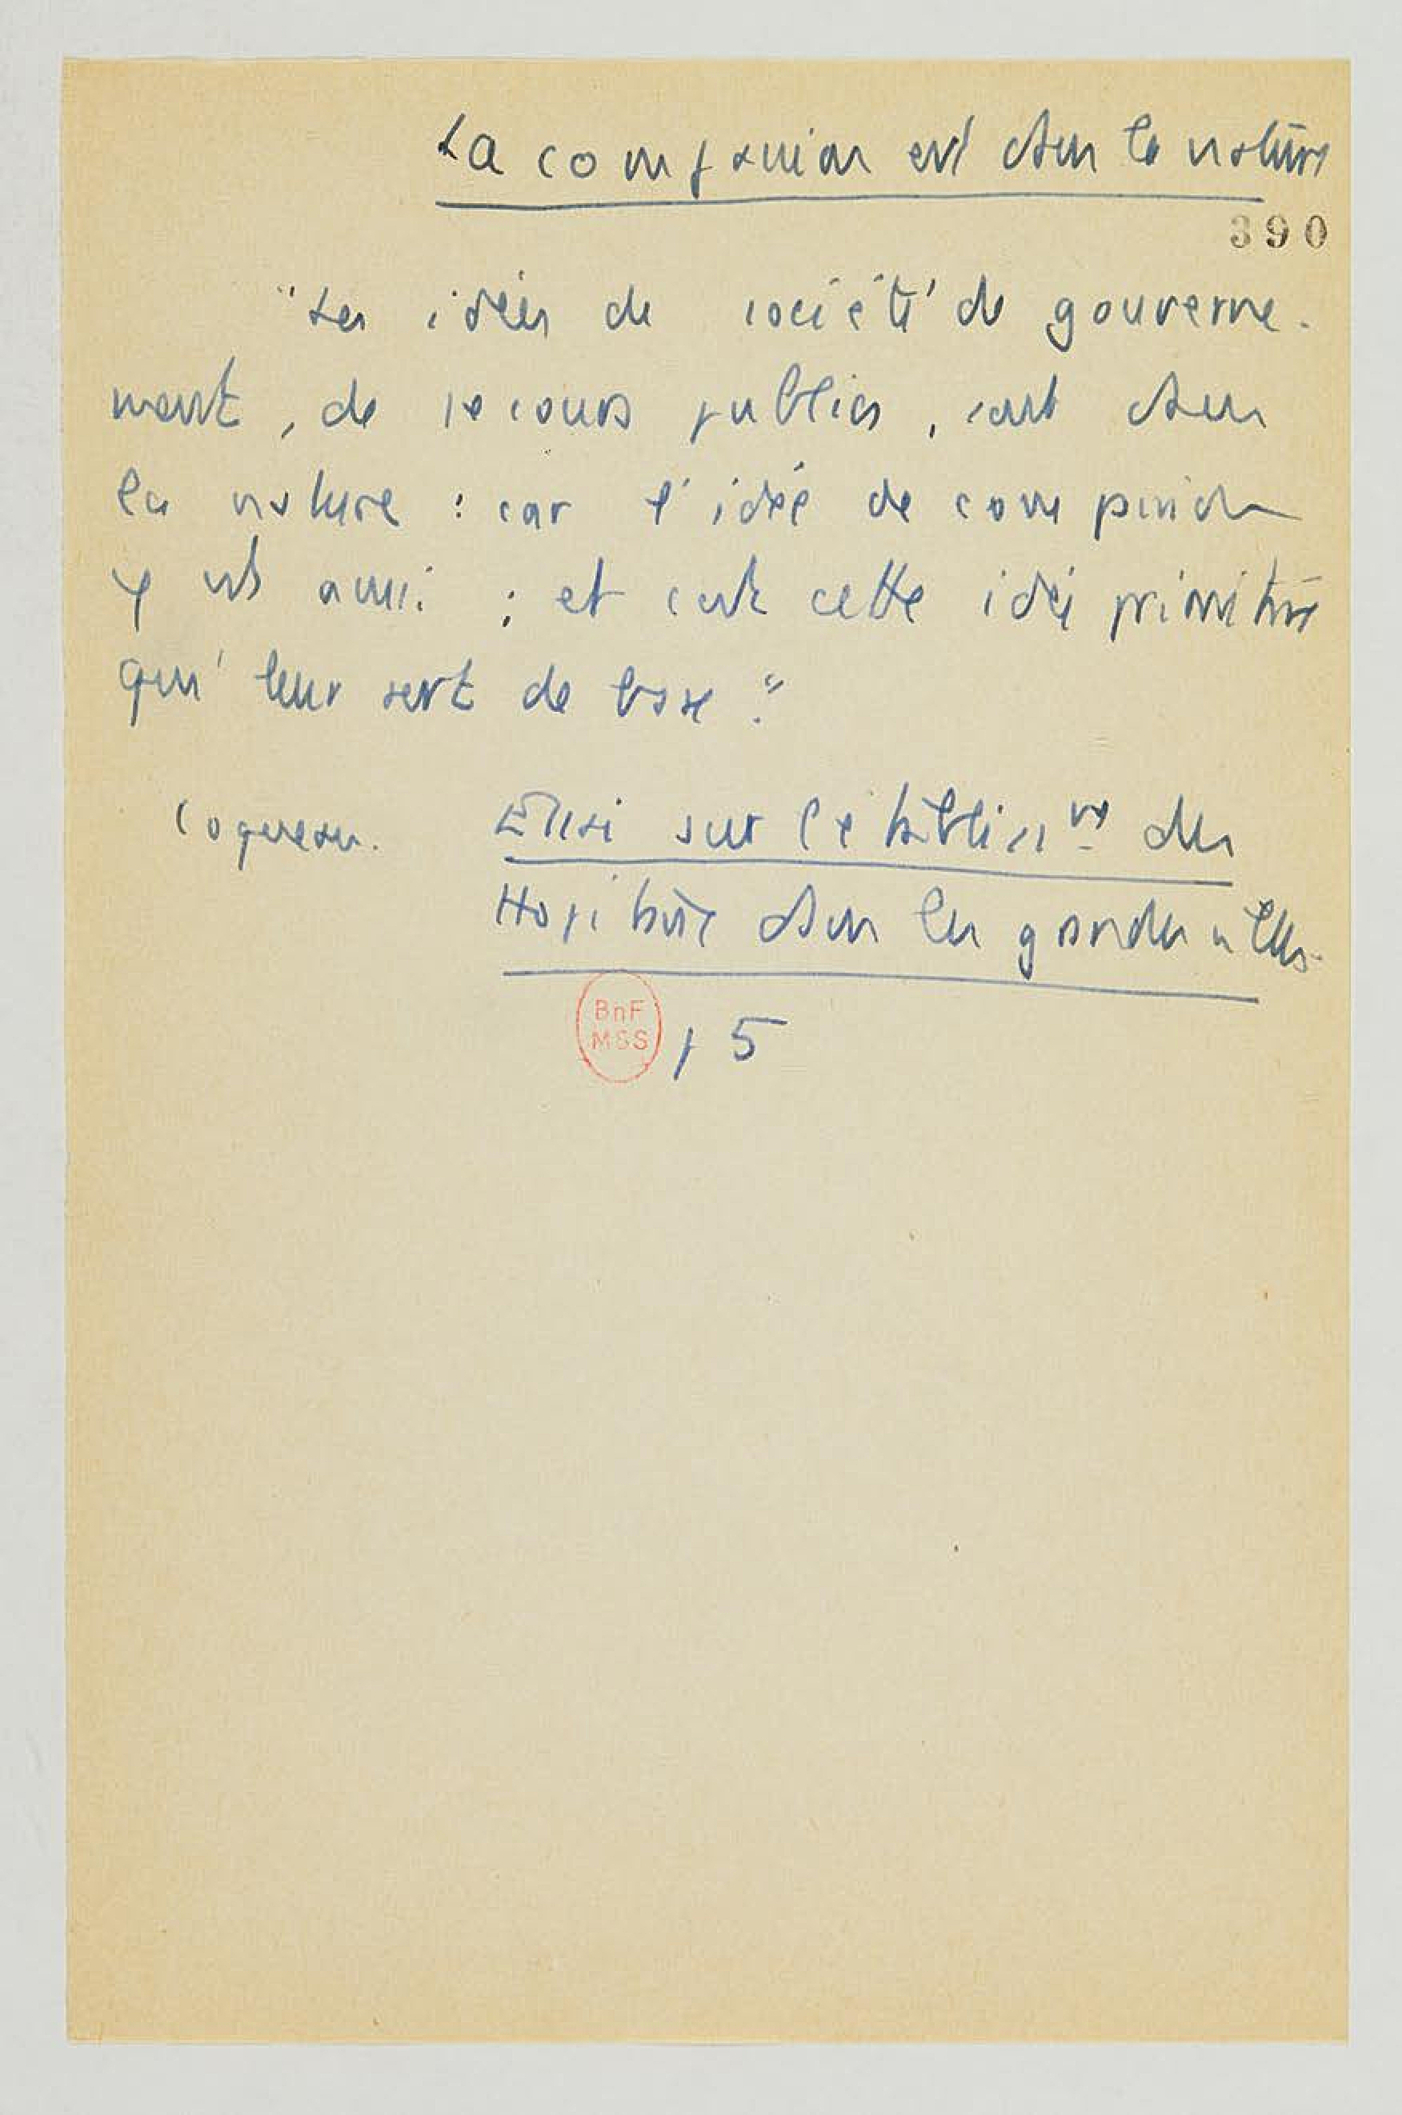 La compassion est dans la nature
390
"Les idées de société de gouverne-
ment, de secours publics, sont dans
la nature : car l'idée de compassion
y est aussi ; et c'est cette idée primitive
qui leur sert de base."
Coqueau. Essai sur l'établissᵗ des
Hôpitaux dans les grandes villes.
BnF
MSS
p 5